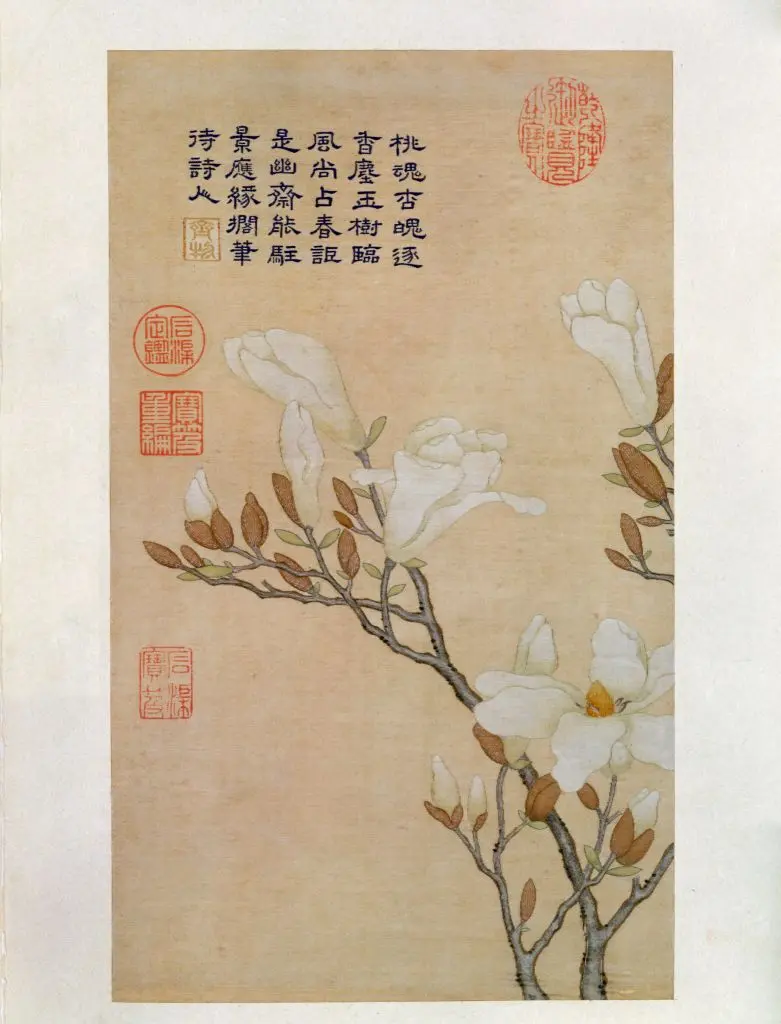 乾隆御覽之寶
桃魂杏魄逐
香塵玉樹臨
風尚占春詎
是幽齋能駐
景應緣擱筆
待詩人
齊物
石渠定鑑
寶笈重編
石渠寶笈